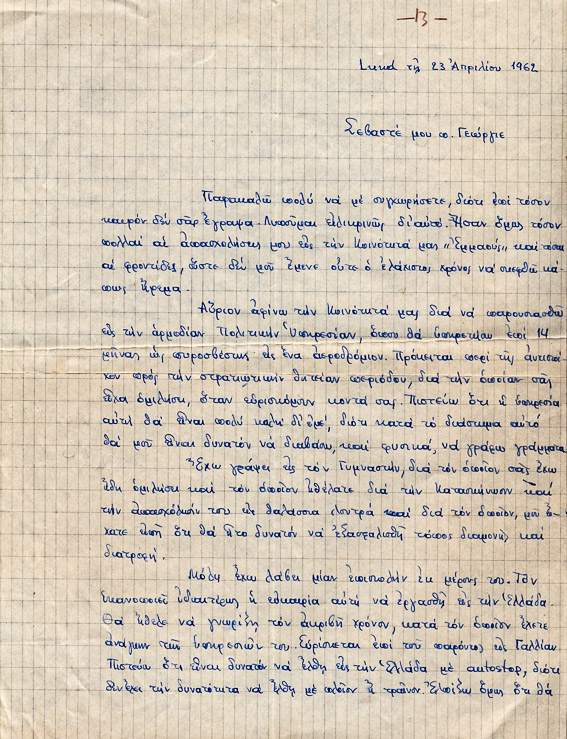 —13—
Lund τῇ 23 Ἀπριλίου 1962
Σεβαστέ μου π. Γεώργιε
Παρακαλῶ πολὺ νὰ μὲ συγχωρήσετε, διότι ἐπὶ τόσον
καιρὸν δὲν σᾶς ἔγραψα. Λυποῦμαι εἰλικρινῶς δι' αὐτό. Ἦσαν ὅμως τόσον
πολλαὶ αἱ ἀπασχολήσεις μου εἰς τὴν Κοινότητά μας "Ἐμμαούς" καὶ τόσαι
αἱ φροντίδες, ὥστε δὲν μοῦ ἔμενε οὔτε ὁ ἐλάχιστος χρόνος νὰ σκεφθῶ κά-
πως ἤρεμα.
Αὔριον ἀφίνω τὴν Κοινότητά μας διὰ νὰ παρουσιασθῶ
εἰς τὴν ἁρμοδίαν Πολιτικὴν Ὑπηρεσίαν, ὅπου θὰ ὑπηρετήσω ἐπὶ 14
μῆνας ὡς πυροσβέστης εἰς ἕνα ἀεροδρόμιον. Πρόκειται περὶ τῆς ἀντιστοί
χου πρὸς τὴν στρατιωτικὴν θητείαν περιόδου, διὰ τὴν ὁποίαν σᾶς
εἶχα ὁμιλήσει, ὅταν εὑρισκόμουν κοντά σας. Πιστεύω ὅτι ἡ ὑπηρεσία
αὐτὴ θὰ εἶναι πολὺ καλὴ δι' ἐμέ, διότι κατὰ τὸ διάστημα αὐτὸ
θὰ μοῦ εἶναι δυνατὸν νὰ διαβάσω, καὶ φυσικά, νὰ γράφω γράμματα
Ἔχω γράψει εἰς τὸν Γυμναστήν, διὰ τὸν ὁποῖον σᾶς ἔχω
ἤδη ὁμιλήσει καὶ τὸν ὁποῖον ἠθέλατε διὰ τὴν Κατασκήνωσιν καὶ
τὴν ἀπασχόλησίν του εἰς θαλάσσια λουτρὰ καὶ διὰ τὸν ὁποῖον, μοῦ εἴ-
χατε εἰπῆ ὅτι θὰ ἦτο δυνατὸν νὰ ἐξασφαλισθῇ τόπος διαμονῆς καὶ
διατροφή.
Μόλις ἔχω λάβει μίαν ἐπιστολὴν ἐκ μέρους του. Τὸν
ἱκανοποιεῖ ἰδιαιτέρως ἡ εὐκαιρία αὐτὴ νὰ ἐργασθῇ εἰς τὴν Ἑλλάδα.
Θὰ ἤθελε νὰ γνωρίζῃ τὸν ἀκριβῆ χρόνον, κατὰ τὸν ὁποῖον ἔχετε
ἀνάγκην τῶν ὑπηρεσιῶν του. Εὑρίσκεται ἐπὶ τοῦ παρόντος εἰς Γαλλίαν.
Πιστεύω ὅτι εἶναι δυνατὸν νὰ ἔλθῃ εἰς τὴν Ἑλλάδα μὲ autostop, διότι
δὲν ἔχει τὴν δυνατότητα νὰ ἔλθῃ μὲ πλοῖον ἢ τραῖνον. Ἐλπίζω ὅμως ὅτι θὰ